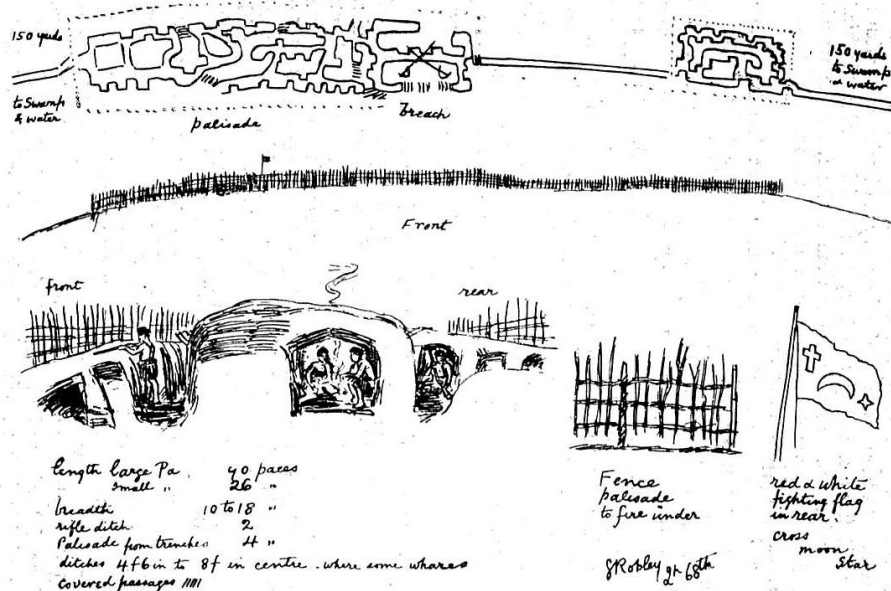 150 yards
to Swamp
& water
palisade
breach
150 yards
to Swamp
& water
Front
front
rear
length large Pa 90 paces
small " 26 "
breadth 10 to 18 "
rifle ditch 2
Palisade from trenches 4 "
ditches 4f6in to 8f in centre. where some whares
covered passages
Fence
palisade
to fire under
red & white
fighting flag
in rear.
cross
moon
Star
GRobley 68th